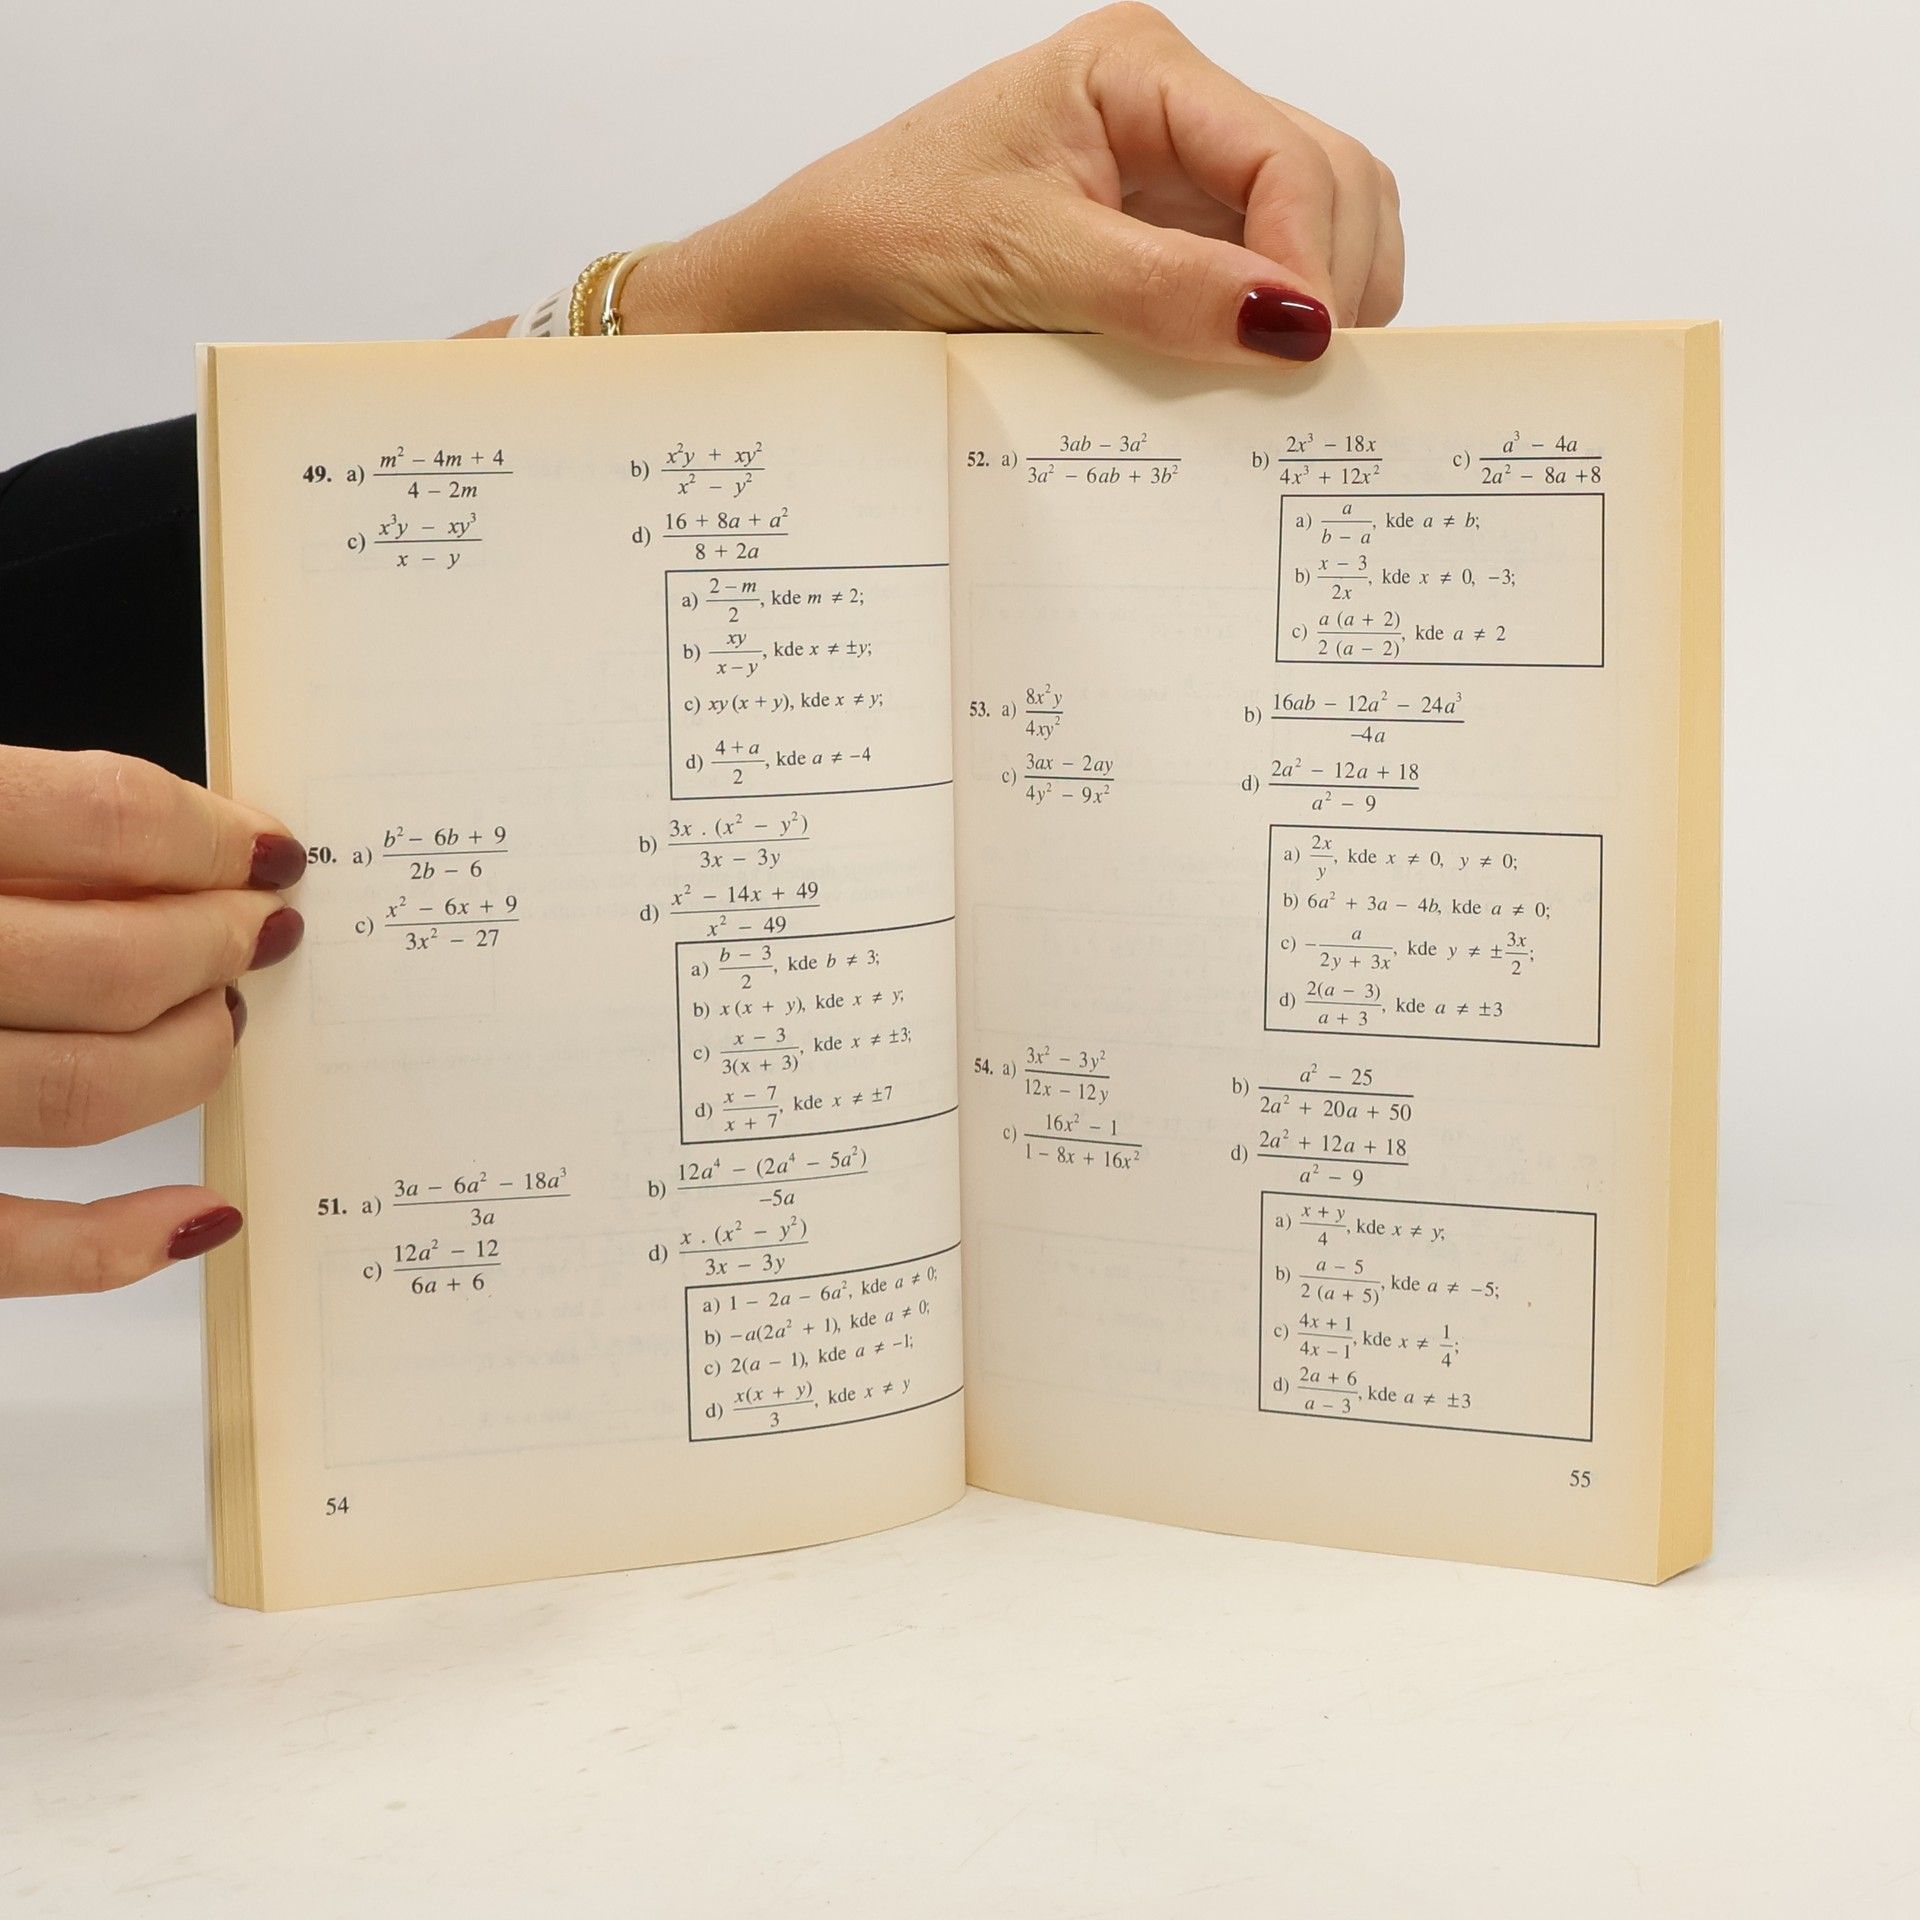 49. a) (m² − 4m + 4)/(4 − 2m) b) (x²y + xy²)/(x² − y²)
c) (x³y − xy³)/(x − y) d) (16 + 8a + a²)/(8 + 2a)
a) (2 − m)/2, kde m ≠ 2;
b) xy/(x − y), kde x ≠ ±y;
c) xy (x + y), kde x ≠ y;
d) (4 + a)/2, kde a ≠ −4
50. a) (b² − 6b + 9)/(2b − 6) b) (3x . (x² − y²))/(3x − 3y)
c) (x² − 6x + 9)/(3x² − 27) d) (x² − 14x + 49)/(x² − 49)
a) (b − 3)/2, kde b ≠ 3;
b) x (x + y), kde x ≠ y;
c) (x − 3)/(3(x + 3)), kde x ≠ ±3;
d) (x − 7)/(x + 7), kde x ≠ ±7
51. a) (3a − 6a² − 18a³)/(3a) b) (12a⁴ − (2a⁴ − 5a²))/(−5a)
c) (12a² − 12)/(6a + 6) d) (x . (x² − y²))/(3x − 3y)
a) 1 − 2a − 6a², kde a ≠ 0;
b) −a(2a² + 1), kde a ≠ 0;
c) 2(a − 1), kde a ≠ −1;
d) (x(x + y))/3, kde x ≠ y
54
52. a) (3ab − 3a²)/(3a² − 6ab + 3b²) b) (2x³ − 18x)/(4x³ + 12x²) c) (a³ − 4a)/(2a² − 8a +8)
a) a/(b − a), kde a ≠ b;
b) (x − 3)/(2x), kde x ≠ 0, −3;
c) (a (a + 2))/(2 (a − 2)), kde a ≠ 2
53. a) (8x²y)/(4xy²) b) (16ab − 12a² − 24a³)/(−4a)
c) (3ax − 2ay)/(4y² − 9x²) d) (2a² − 12a + 18)/(a² − 9)
a) 2x/y, kde x ≠ 0, y ≠ 0;
b) 6a² + 3a − 4b, kde a ≠ 0;
c) − a/(2y + 3x), kde y ≠ ± 3x/2;
d) (2(a − 3))/(a + 3), kde a ≠ ±3
54. a) (3x² − 3y²)/(12x − 12y) b) (a² − 25)/(2a² + 20a + 50)
c) (16x² − 1)/(1 − 8x + 16x²) d) (2a² + 12a + 18)/(a² − 9)
a) (x + y)/4, kde x ≠ y;
b) (a − 5)/(2 (a + 5)), kde a ≠ −5;
c) (4x + 1)/(4x − 1), kde x ≠ 1/4;
d) (2a + 6)/(a − 3), kde a ≠ ±3
55